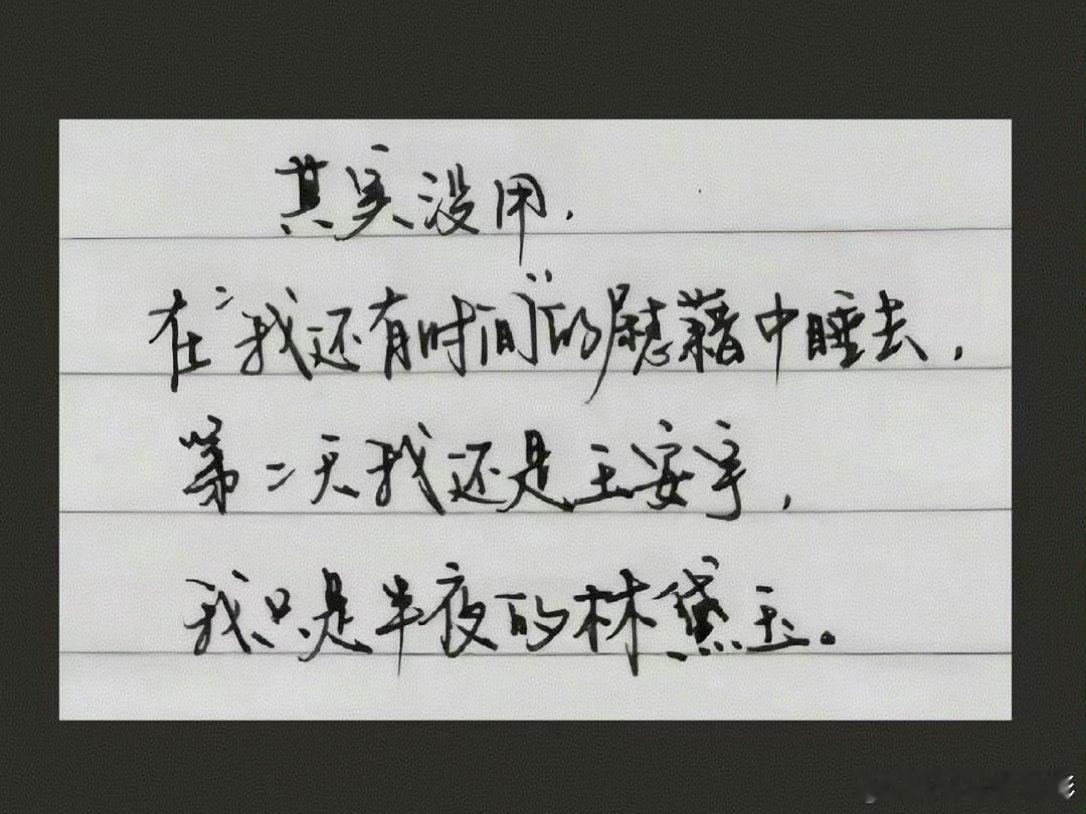 其实没用，
在“我还有时间”的慰藉中睡去，
第二天我还是王安宇，
我只是半夜的林黛玉。